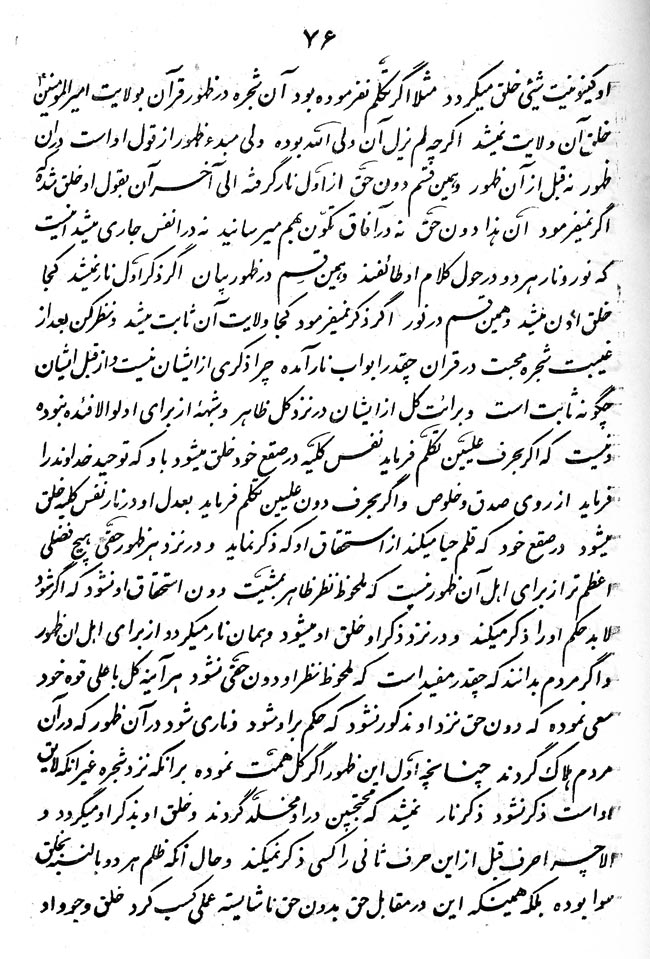 ۷۶
او کینونیت شیئی خلق میگردد مثلا اگر تکلم نفرموده بود آن شجره در ظهور قرآن بولایت امیر المؤمنین
خلق آن ولایت نمیشد اگر چه لم یزل آن ولی الله بوده ولی مبدء ظهور از قول او است در ان
ظهور نه قبل از آن ظهور و بهمین قسم دون حق از اول نار گرفته الی آخر آن بقول او خلق شده که
اگر نمیفرمود آن هذا دون حق نه در آفاق تکون بهم میرسانید نه در انفس جاری میشد اینست
که نور و نار هر دو در حول کلام او طائفند و بهمین قسم در ظهور بیان اگر ذکر اول نار نمیشد کجا
خلق آن میشد و همین قسم در نور اگر ذکر نمیفرمود کجا ولایت آن ثابت میشد و نظر کن بعد از
غیبت شجره محبت در قران چقدر ابواب نار آمده چرا ذکری از ایشان نیست و از قبل ایشان
چگونه ثابت است و برائت کل از ایشان در نزد کل ظاهر و شبهه از برای اولو الافئده نبوده
و نیست که اگر بحرف علیین تکلم فرماید نفس کلیه در صقع خود خلق میشود باو که توحید خداوند را
فرماید از روی صدق و خلوص و اگر بحرف دون علیین تکلم فرماید بعدل او در نار نفس کلیه خلق
میشود در صقع خود که قلم حیا میکند از استحقاق او که ذکر نماید و در نزد هر ظهور حقی هیچ فضلی
اعظم تر از برای اهل آن ظهور نیست که ملحوظ نظر ظاهر بمشیت دون استحقاق او نشود که اگر شود
لابد حکم او را ذکر میکند و در نزد ذکر او خلق او میشود و همان نار میگردد از برای اهل ان ظهور
و اگر مردم بدانند که چقدر مفید است که ملحوظ نظر او دون حقی نشود هر آینه کل باعلی قوه خود
سعی نموده که دون حق نزد او مذکور نشود که حکم بر او شود و ناری شود در آن ظهور که در آن
مردم هلاک گردند چنانچه اول این ظهور اگر کل همت نموده بر انکه نزد شجره غیر انکه لایق
او است ذکر نشود ذکر نار نمیشد که محتجبین در او مخلد گردند و خلق او بذکر او میگردد و
الا چرا حرف قبل از این حرف ثانی را کسی ذکر نمیکند و حال آنکه ظلم هر دو بالنسبه بخلق
سوا بوده بلکه همینکه این در مقابل حق بدون حق ناشایسته علی کسب کرد خلق وجود او